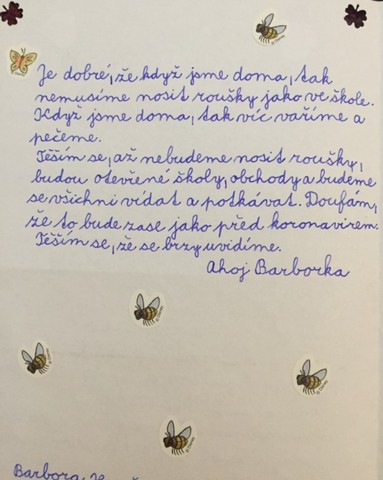 Je dobré, že když jsme doma, tak
nemusíme nosit roušky jako ve škole.
Když jsme doma, tak víc vaříme a
pečeme.
Těším se, až nebudeme nosit roušky,
budou otevřené školy, obchody a budeme
se všichni vídat a potkávat. Doufám,
že to bude zase jako před koronavirem.
Těším se, že se brzy uvidíme.
Ahoj Barborka
Barbora